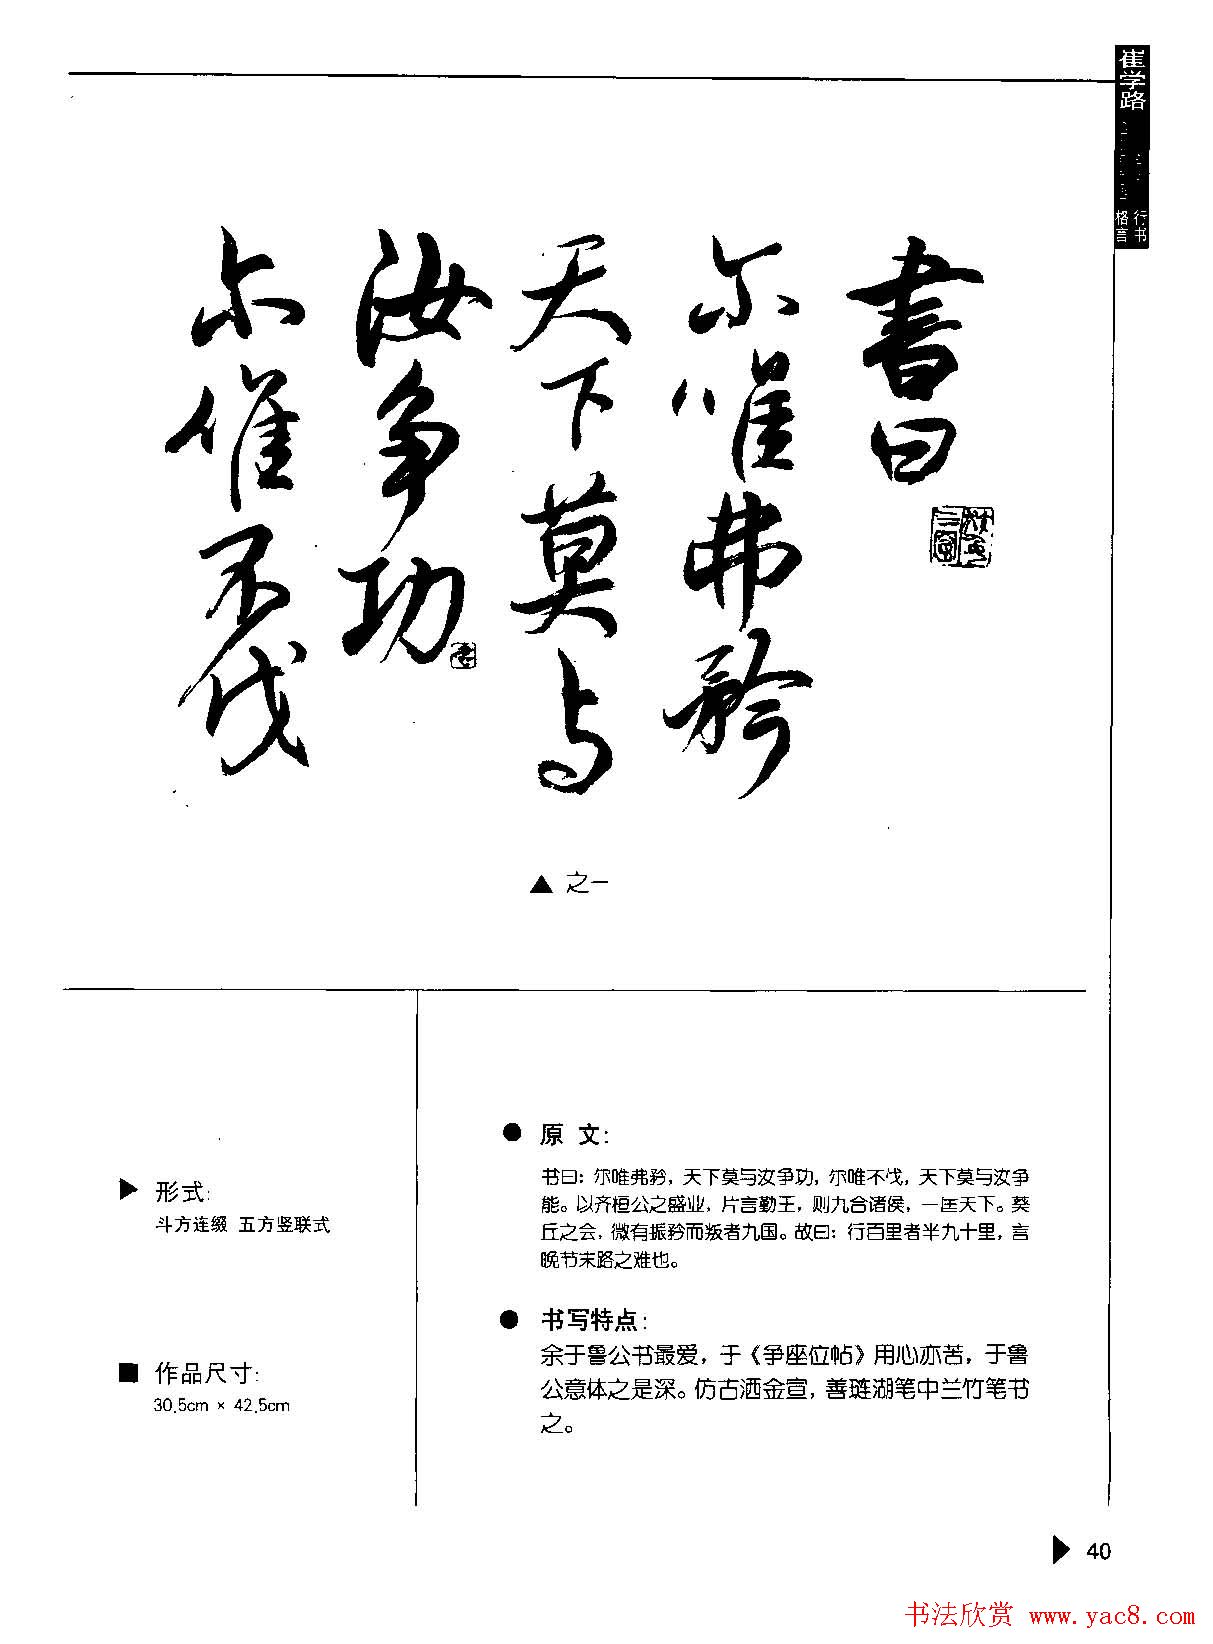 崔学路
行书
格言
書曰
尔唯弗矜
天下莫与
汝争功
尔唯不伐
▲ 之一
▶ 形式:
斗方连缀 五方竖联式
■ 作品尺寸:
30.5cm × 42.5cm
● 原 文:
书曰：尔唯弗矜，天下莫与汝争功，尔唯不伐，天下莫与汝争
能。以齐桓公之盛业，片言勤王，则九合诸侯，一匡天下。葵
丘之会，微有振矜而叛者九国。故曰：行百里者半九十里，言
晚节末路之难也。
● 书写特点:
余于鲁公书最爱，于《争座位帖》用心亦苦，于鲁
公意体之是深。仿古洒金宣，善琏湖笔中兰竹笔书
之。
▶ 40
书法欣赏 www.yac8.com